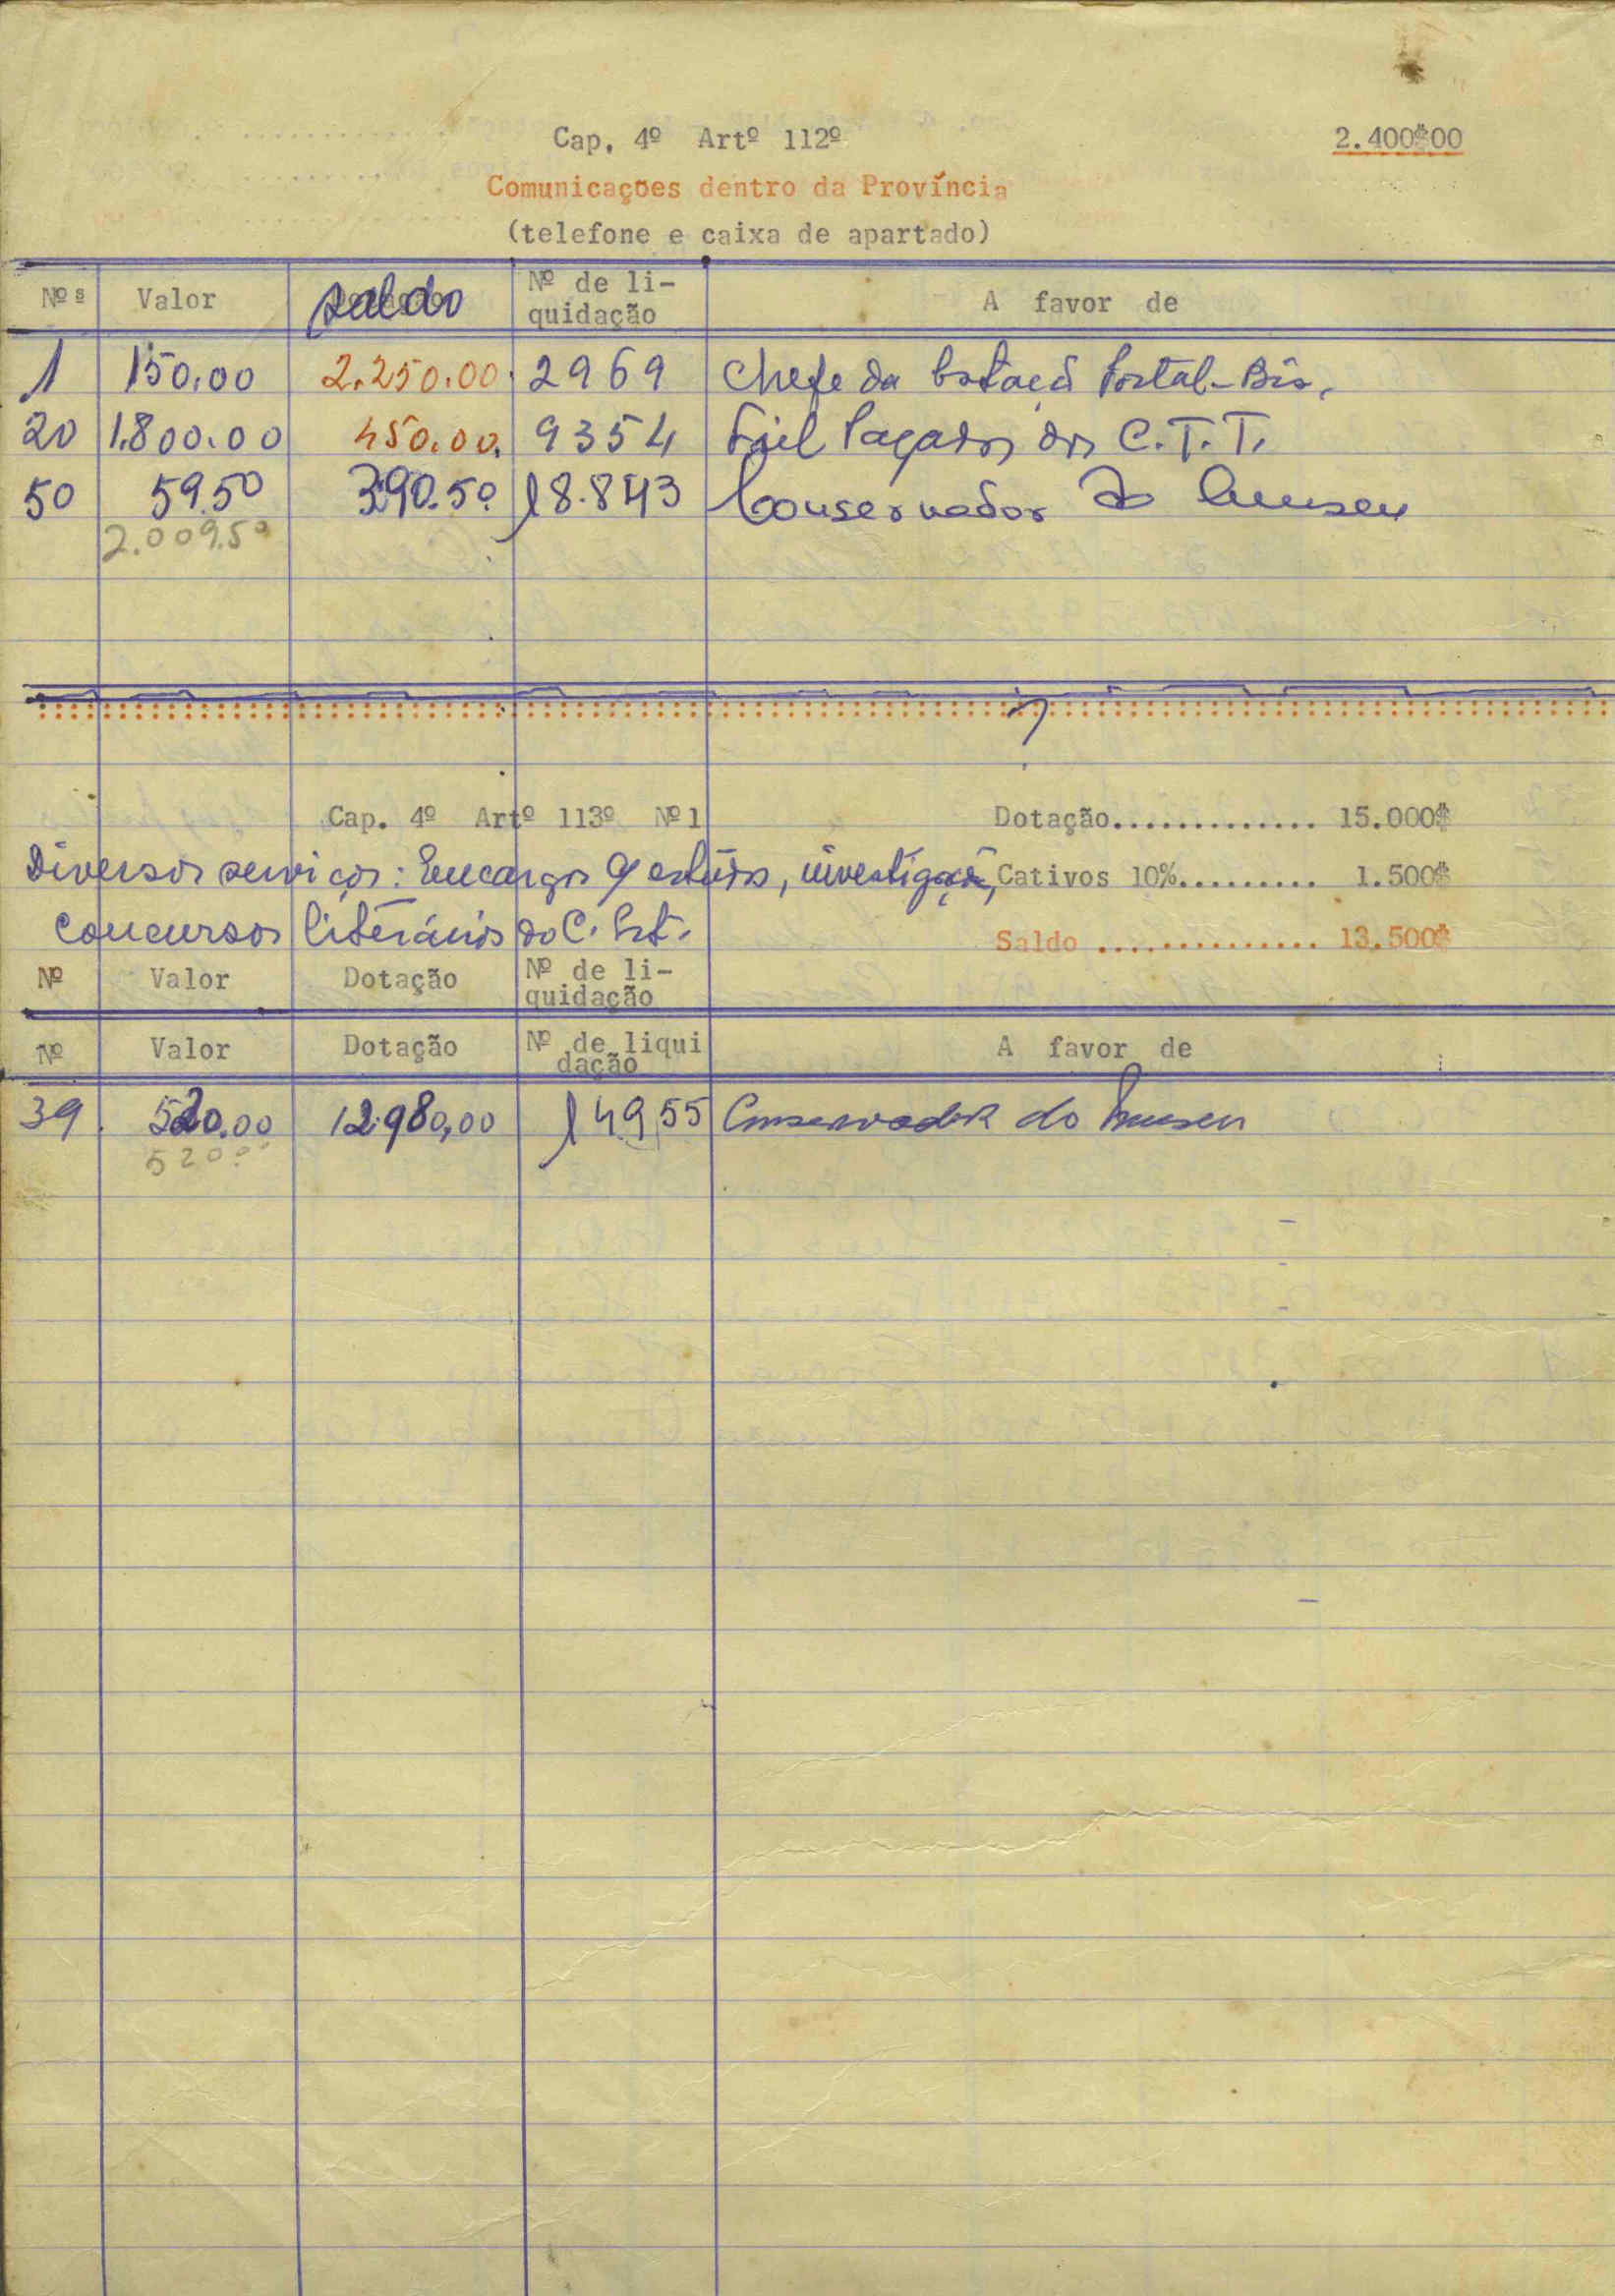 Cap. 4º Artº 112º 2.400$00
Comunicações dentro da Província
(telefone e caixa de apartado)
Nºs Valor saldo Nº de li-
quidação A favor de
1 150.00 2.250.00 2969 Chefe da Estaçã Postal-Bis.
20 1.800.00 450.00. 9354 Fiel Pagador dos C.T.T.
50 59.50 390.50 18.843 Conservador do Museu
2.009.50
Cap. 4º Artº 113º Nº 1 Dotação............. 15.000$
Diversos serviços: Encargos c/ estudos, investigaçã, Cativos 10%......... 1.500$
concursos literários do C. Est. Saldo .............. 13.500$
Nº Valor Dotação Nº de li-
quidação
Nº Valor Dotação Nº de liqui
dação A favor de
39 520.00 12.980,00 14955 Conservador do Museu
520.00